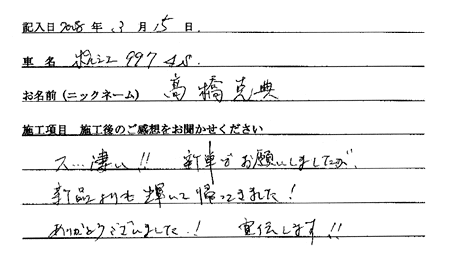 記入日 2008 年 3 月 15 日.
車 名 ポルシェ 997 4S.
お名前 (ニックネーム) 高橋克典
施工項目 施工後のご感想をお聞かせください
ス…凄い!! 新車でお願いしましたが、
新品よりも輝いて帰ってきました!
ありがとうございました.! 宣伝します!!